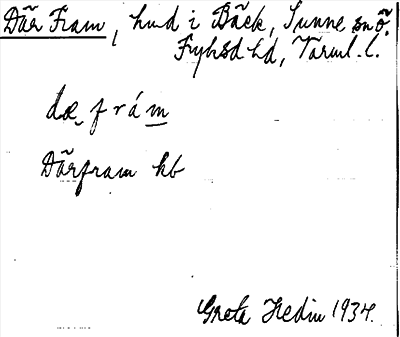 Där Fram, hmd i Bäck, Sunne snö.
Fryksd hd, Värml. l.
dæ̨ frám
Därfram kb
Greta Hedin 1934.